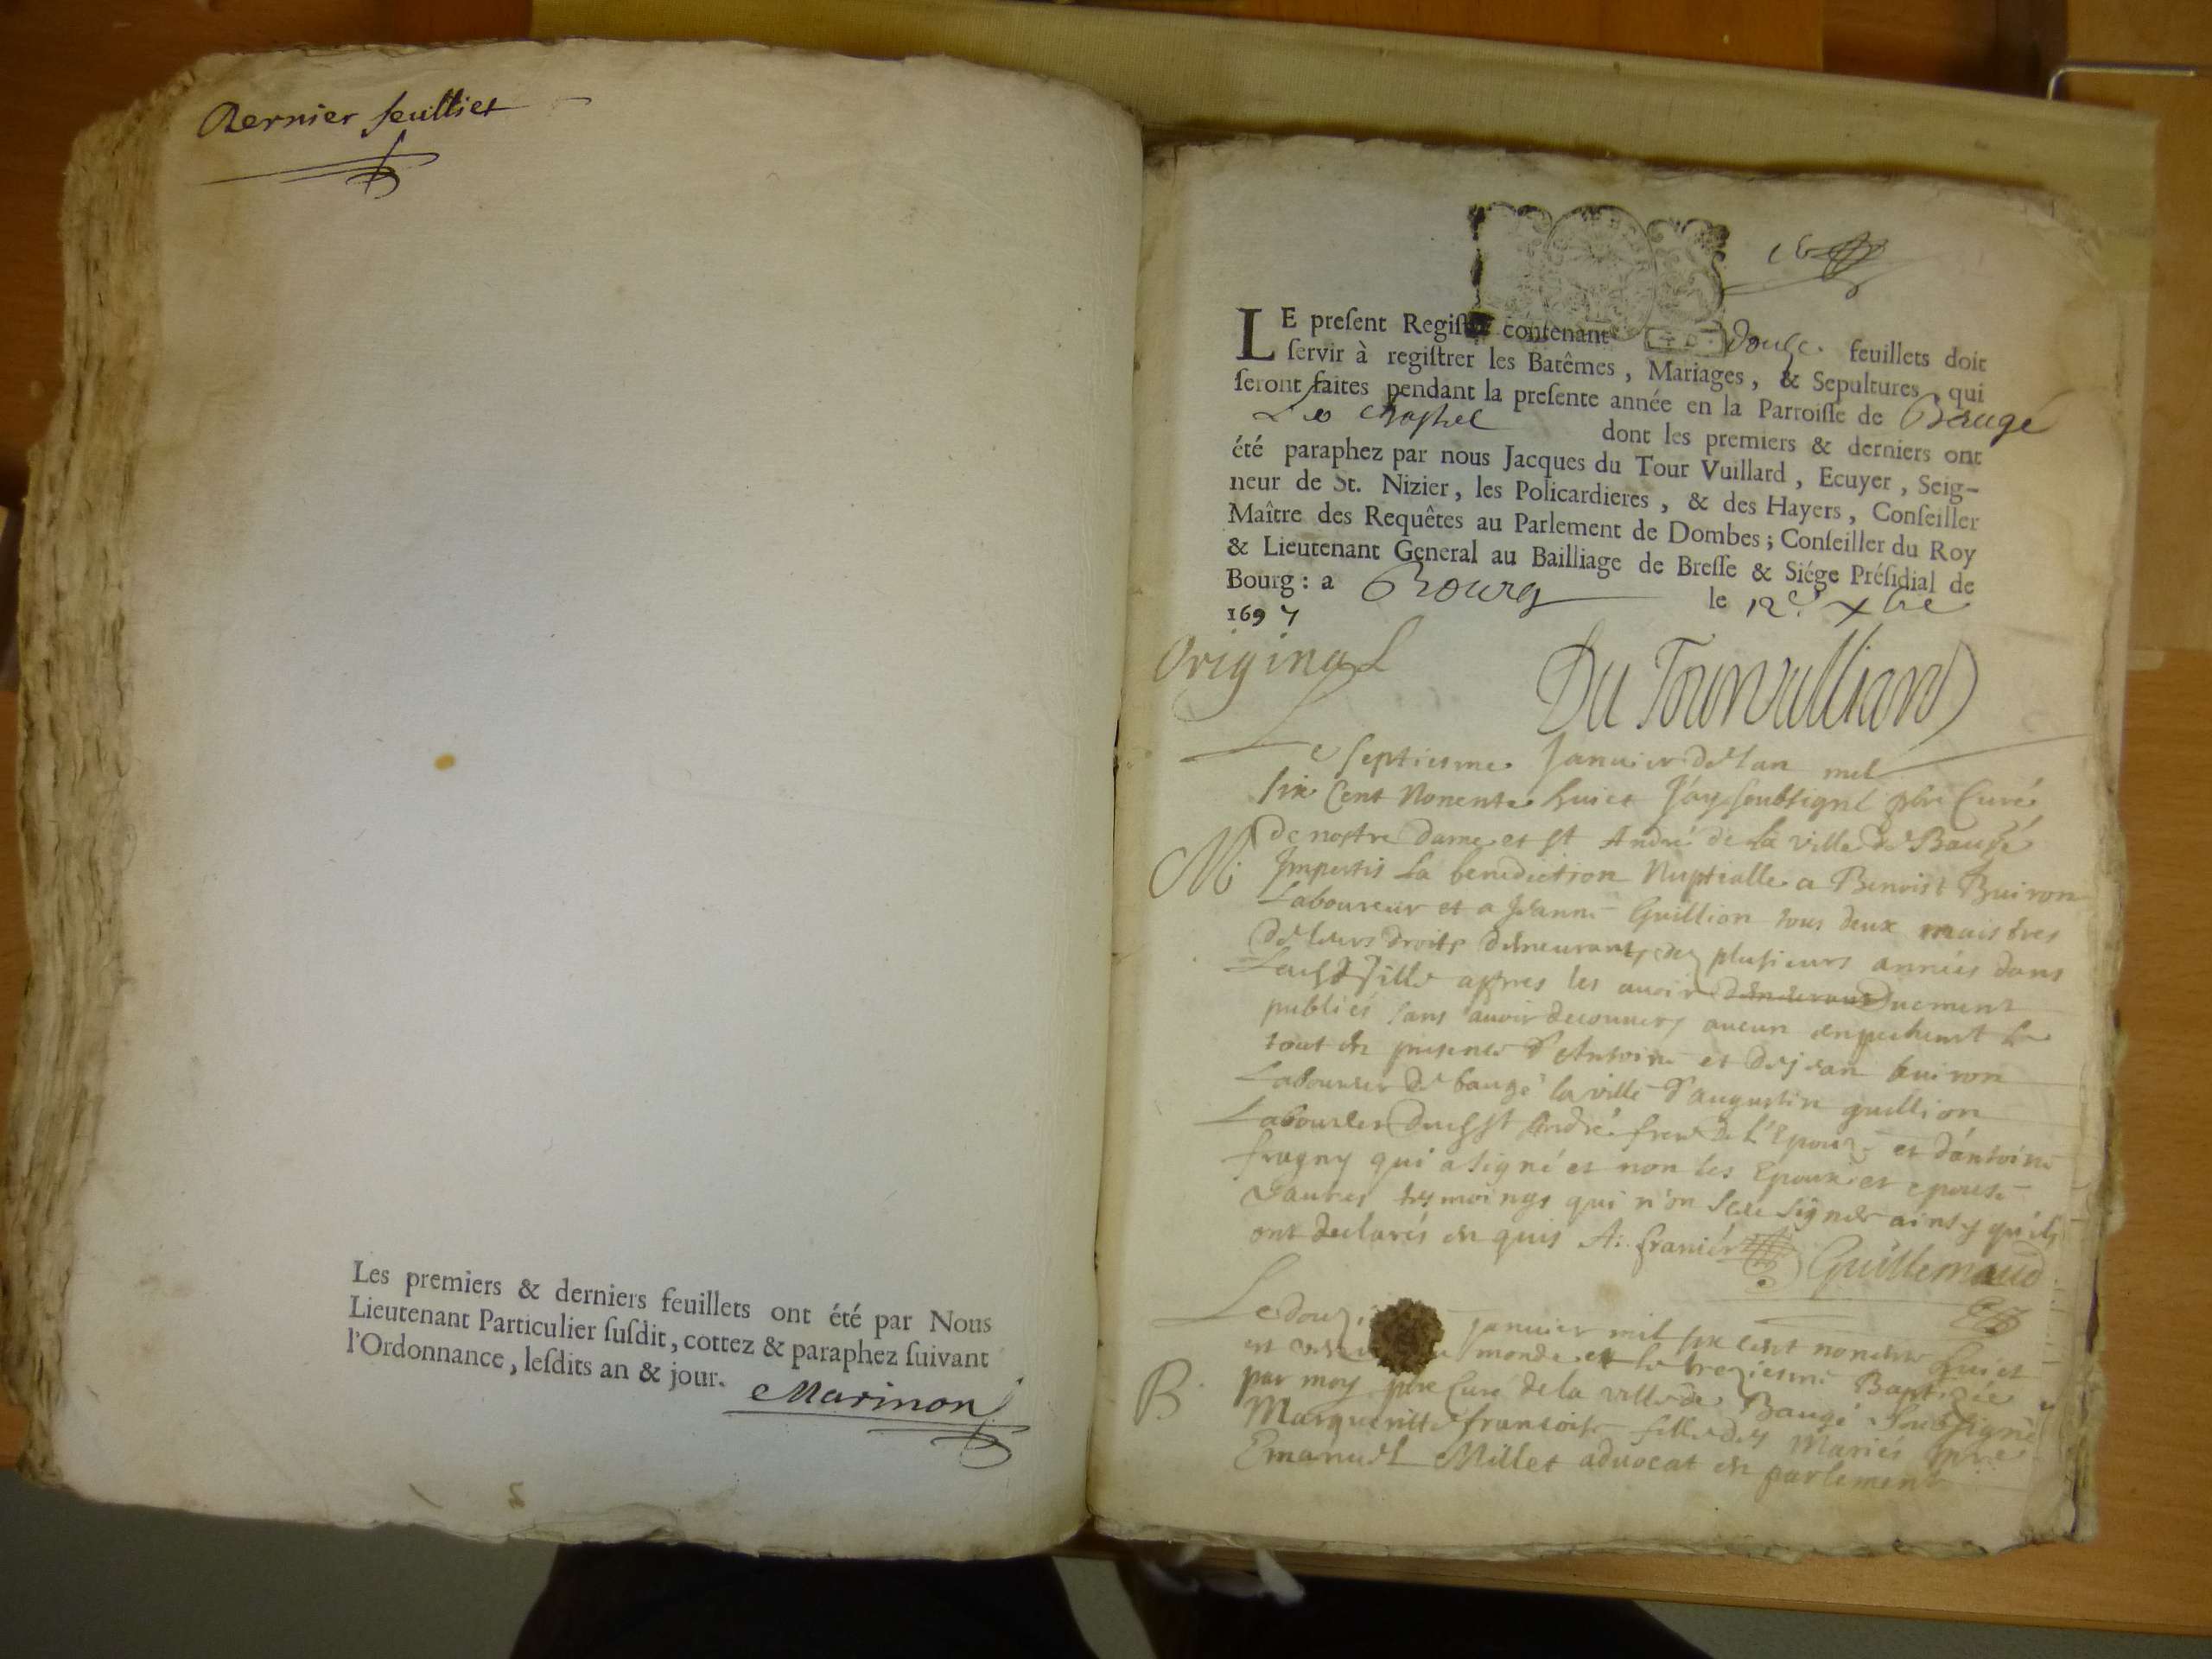 Dernier feuillet
Les premiers & derniers feuillets ont été par Nous
Lieutenant Particulier susdit, cottez & paraphez suivant
l'Ordonnance, lesdits an & jour.
Marinon
LE present Registre contenant douze feuillets doit
servir à registrer les Batêmes, Mariages, & Sepultures, qui
seront faites pendant la presente année en la Parroisse de Baugé
dont les premiers & derniers ont
été paraphez par nous Jacques du Tour Vuillard, Ecuyer, Seig-
neur de St. Nizier, les Policardieres, & des Hayers, Conseiller
Maître des Requêtes au Parlement de Dombes; Conseiller du Roy
& Lieutenant General au Bailliage de Bresse & Siége Présidial de
Bourg: a Bourg le 12e xbre
1697
Original
Du Tourvulliard
Le septiesme Janvier de lan mil
six Cent Nonente huict Jay soubsigné pbre Curé
de nostre Dame et st André de la ville de Baugé
M. Impertis La benediction Nuptialle a Benoist Buiron
Laboureur et a Jeanne Guillion tous deux maistres
de leurs droits demeurants plusieurs années dans
ville apres les avoir duement
publiés sans avoir decouvert aucun enpechemt le
tout en presence d'Antoine et de jean buiron
Laboureur de baugé la ville d'augustin guillion
Laboureur dud st André frere de l'Epouse et d'antoine
qui a signé et non les Epoux et epouse
tesmoings qui n'on sceu signer ainsy qu'ils
ont declarés en quis A: franier Guillemaud
Le douz janvier mil six cent nonente huict
est monde et le treziesme Baptizée
B. par moy pbre Curé de la ville de Baugé soubsigné
Margueritte fransoise fille des Mariés
Emanuel Millet advocat en parlement